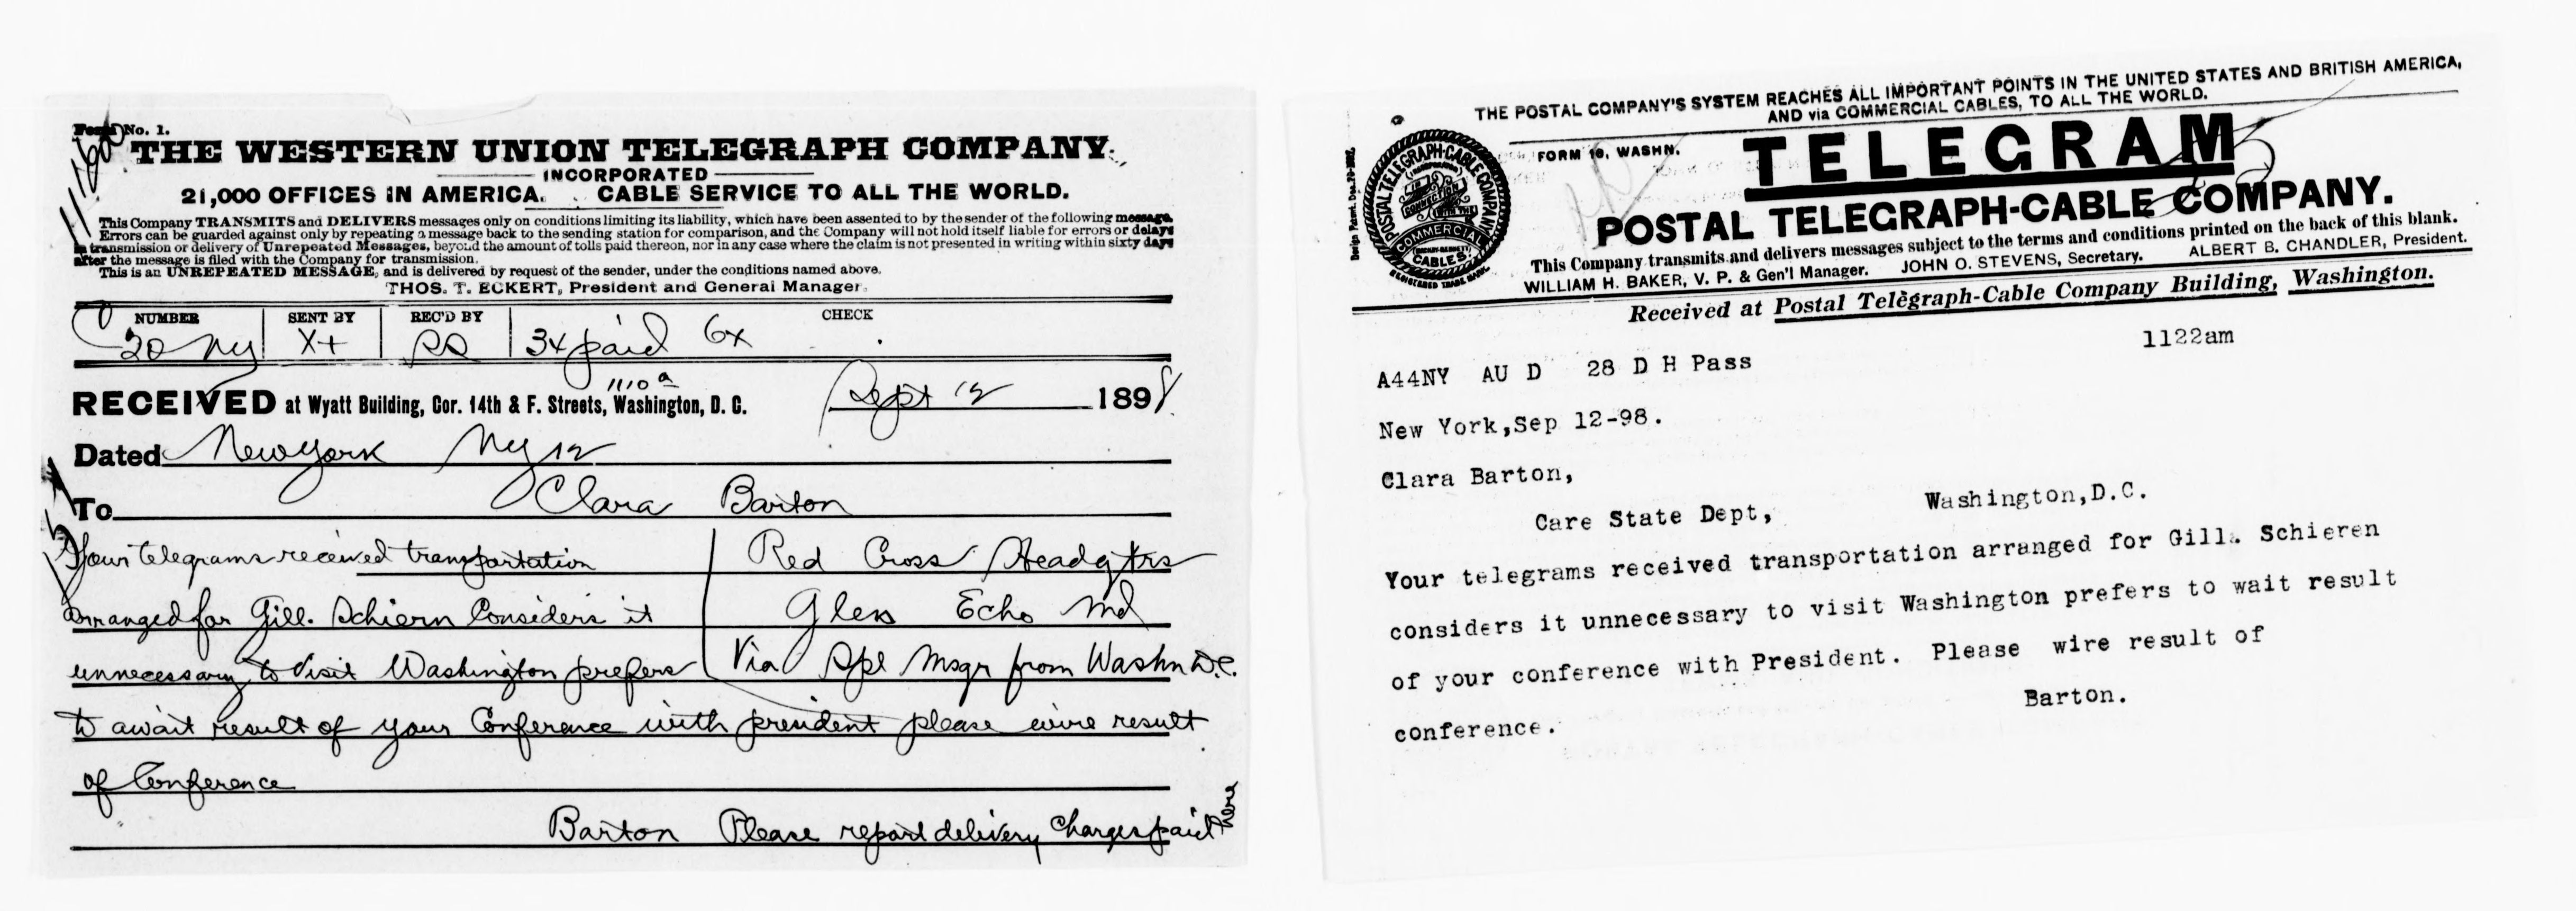 Form No. 1.
THE WESTERN UNION TELEGRAPH COMPANY.
INCORPORATED
21,000 OFFICES IN AMERICA. CABLE SERVICE TO ALL THE WORLD.
This Company TRANSMITS and DELIVERS messages only on conditions limiting its liability, which have been assented to by the sender of the following message.
Errors can be guarded against only by repeating a message back to the sending station for comparison, and the Company will not hold itself liable for errors or delays
in transmission or delivery of Unrepeated Messages, beyond the amount of tolls paid thereon, nor in any case where the claim is not presented in writing within sixty days
after the message is filed with the Company for transmission.
This is an UNREPEATED MESSAGE, and is delivered by request of the sender, under the conditions named above.
THOS. T. ECKERT, President and General Manager.
NUMBER SENT BY REC'D BY CHECK
20 Ny X+ 34 paid 6x
1110a
RECEIVED at Wyatt Building, Cor. 14th & F. Streets, Washington, D. C. Sept 12 1898
Dated New York Ny 12
To Clara Barton
Red Cross Headqtrs
Glen Echo Md
Via Spl Msgr from Washn D.C.
Your telegrams received transportation
arranged for Gill. Schiern Considers it
unnecessary to visit Washington prefers
to await result of your Conference with president please wire result
of Conference
Barton Please report delivery charges paid here
THE POSTAL COMPANY'S SYSTEM REACHES ALL IMPORTANT POINTS IN THE UNITED STATES AND BRITISH AMERICA,
AND via COMMERCIAL CABLES, TO ALL THE WORLD.
POSTAL TELEGRAPH-CABLE COMPANY
IN CONNECTION WITH THE
COMMERCIAL CABLES
REGISTERED TRADE MARK.
FORM 16, WASHN.
TELEGRAM
POSTAL TELEGRAPH-CABLE COMPANY.
This Company transmits and delivers messages subject to the terms and conditions printed on the back of this blank.
WILLIAM H. BAKER, V. P. & Gen'l Manager. JOHN O. STEVENS, Secretary. ALBERT B. CHANDLER, President.
Received at Postal Telegraph-Cable Company Building, Washington.
1122am
A44NY AU D 28 D H Pass
New York,Sep 12-98.
Clara Barton,
Care State Dept, Washington,D.C.
Your telegrams received transportation arranged for Gill. Schieren
considers it unnecessary to visit Washington prefers to wait result
of your conference with President. Please wire result of
conference. Barton.